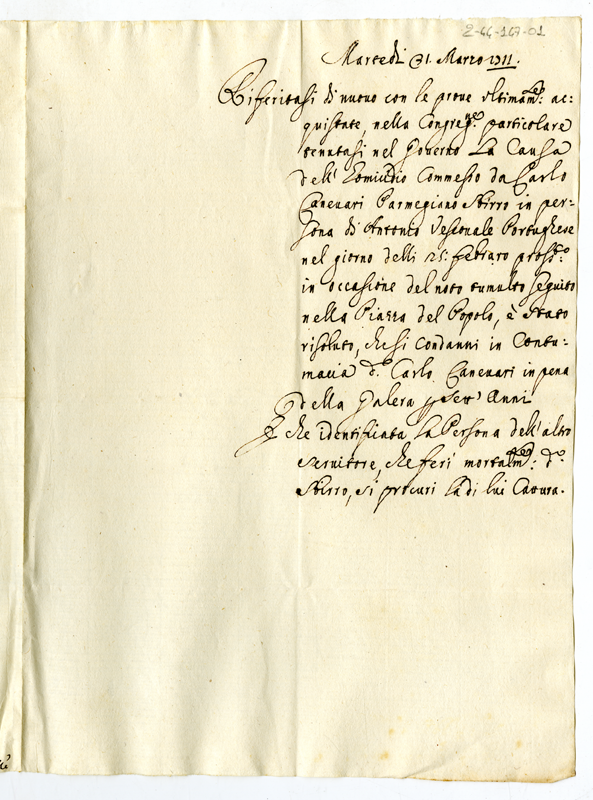 2-44-147-01
Martedì 31. Marzo 1711.
Riferitasi di nuovo con le prove ultimam.te ac:
quistate, nella Congreg.ne particolare
tenutasi nel Governo La Causa
dell' Omicidio Commesso da Carlo
Canevari Parmegiano Sbirro in per-
sona di Antonio Portughese
nel giorno delli 25. febraro pross.o
in occasione del noto tumulto seguito
nella Piazza del Popolo, è stato
risoluto, che si Condanni in Contu-
macia d.o Carlo Canevari in pena
della Galera p Sett' Anni
E che identificata la Persona dell' altro
servitore, che ferì mortalm.te d.o
Sbirro, si procuri la di lui Cattura.